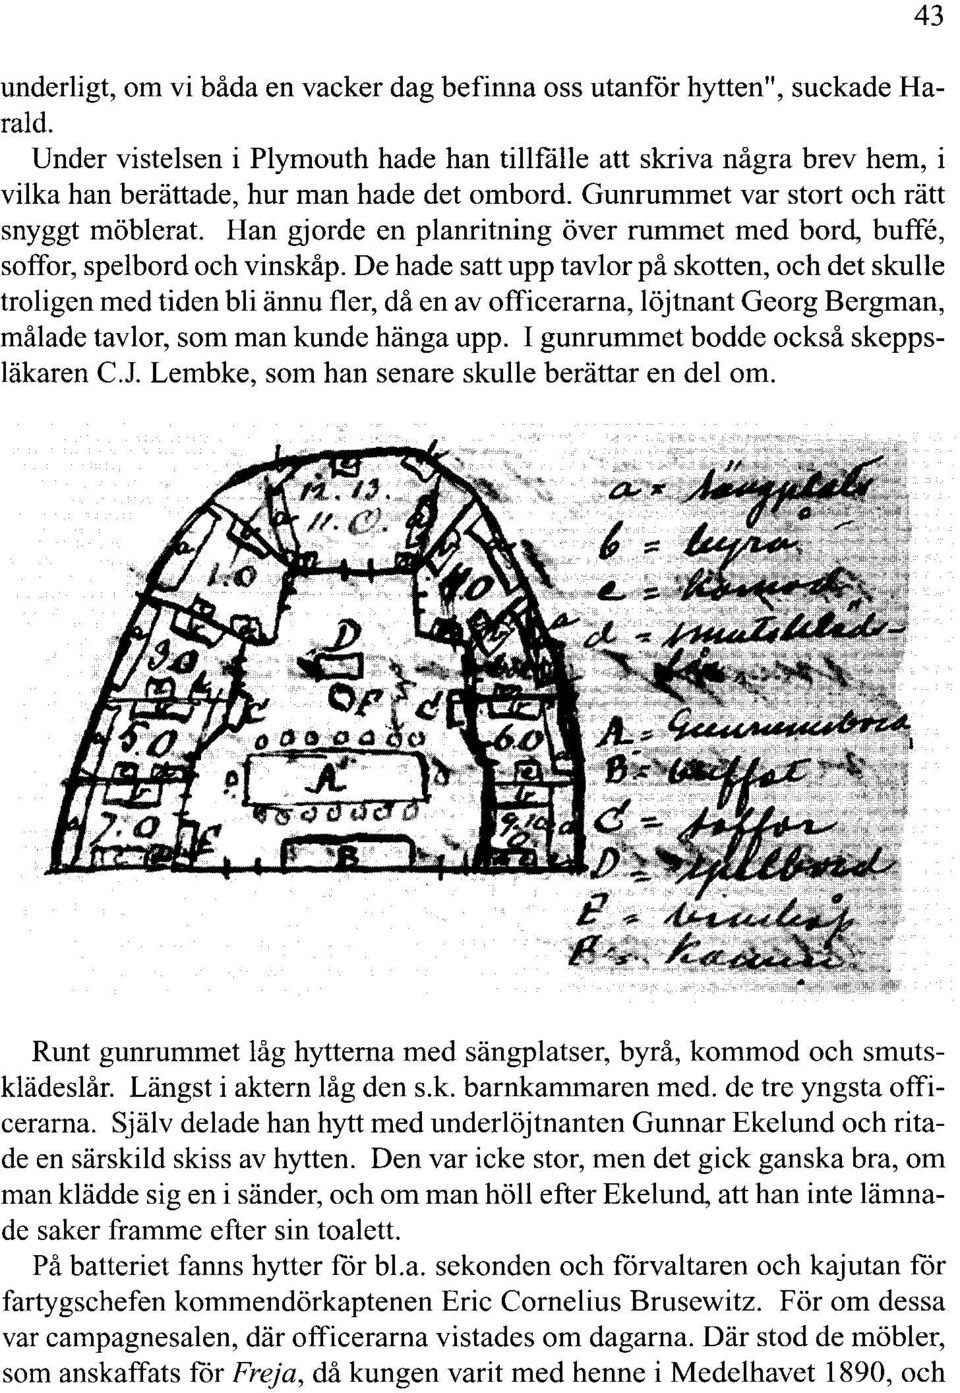 43
underligt, om vi båda en vacker dag befinna oss utanför hytten", suckade Ha-
rald.
Under vistelsen i Plymouth hade han tillfälle att skriva några brev hem, i
vilka han berättade, hur man hade det ombord. Gunrummet var stort och rätt
snyggt möblerat. Han gjorde en planritning över rummet med bord, buffé,
soffor, spelbord och vinskåp. De hade satt upp tavlor på skotten, och det skulle
troligen med tiden bli ännu fler, då en av officerarna, löjtnant Georg Bergman,
målade tavlor, som man kunde hänga upp. I gunrummet bodde också skepps-
läkaren C.J. Lembke, som han senare skulle berättar en del om.
12. 13.
11. O.
1. O
4. O
3. O
5. O
6. O
7. O
9. 10
O
D
F
C
E
A
B
a = Sängplats
b = byrå
c = Kommod
d = smutskläds-
lår
A = Gunrumsbord
B = buffet
C = soffor
D = Spelbord
E = vinskåp
F = Kamin
Runt gunrummet låg hytterna med sängplatser, byrå, kommod och smuts-
klädeslår. Längst i aktern låg den s.k. barnkammaren med. de tre yngsta offi-
cerarna. Själv delade han hytt med underlöjtnanten Gunnar Ekelund och rita-
de en särskild skiss av hytten. Den var icke stor, men det gick ganska bra, om
man klädde sig en i sänder, och om man höll efter Ekelund, att han inte lämna-
de saker framme efter sin toalett.
På batteriet fanns hytter för bl.a. sekonden och förvaltaren och kajutan för
fartygschefen kommendörkaptenen Eric Cornelius Brusewitz. För om dessa
var campagnesalen, där officerarna vistades om dagarna. Där stod de möbler,
som anskaffats för Freja, då kungen varit med henne i Medelhavet 1890, och